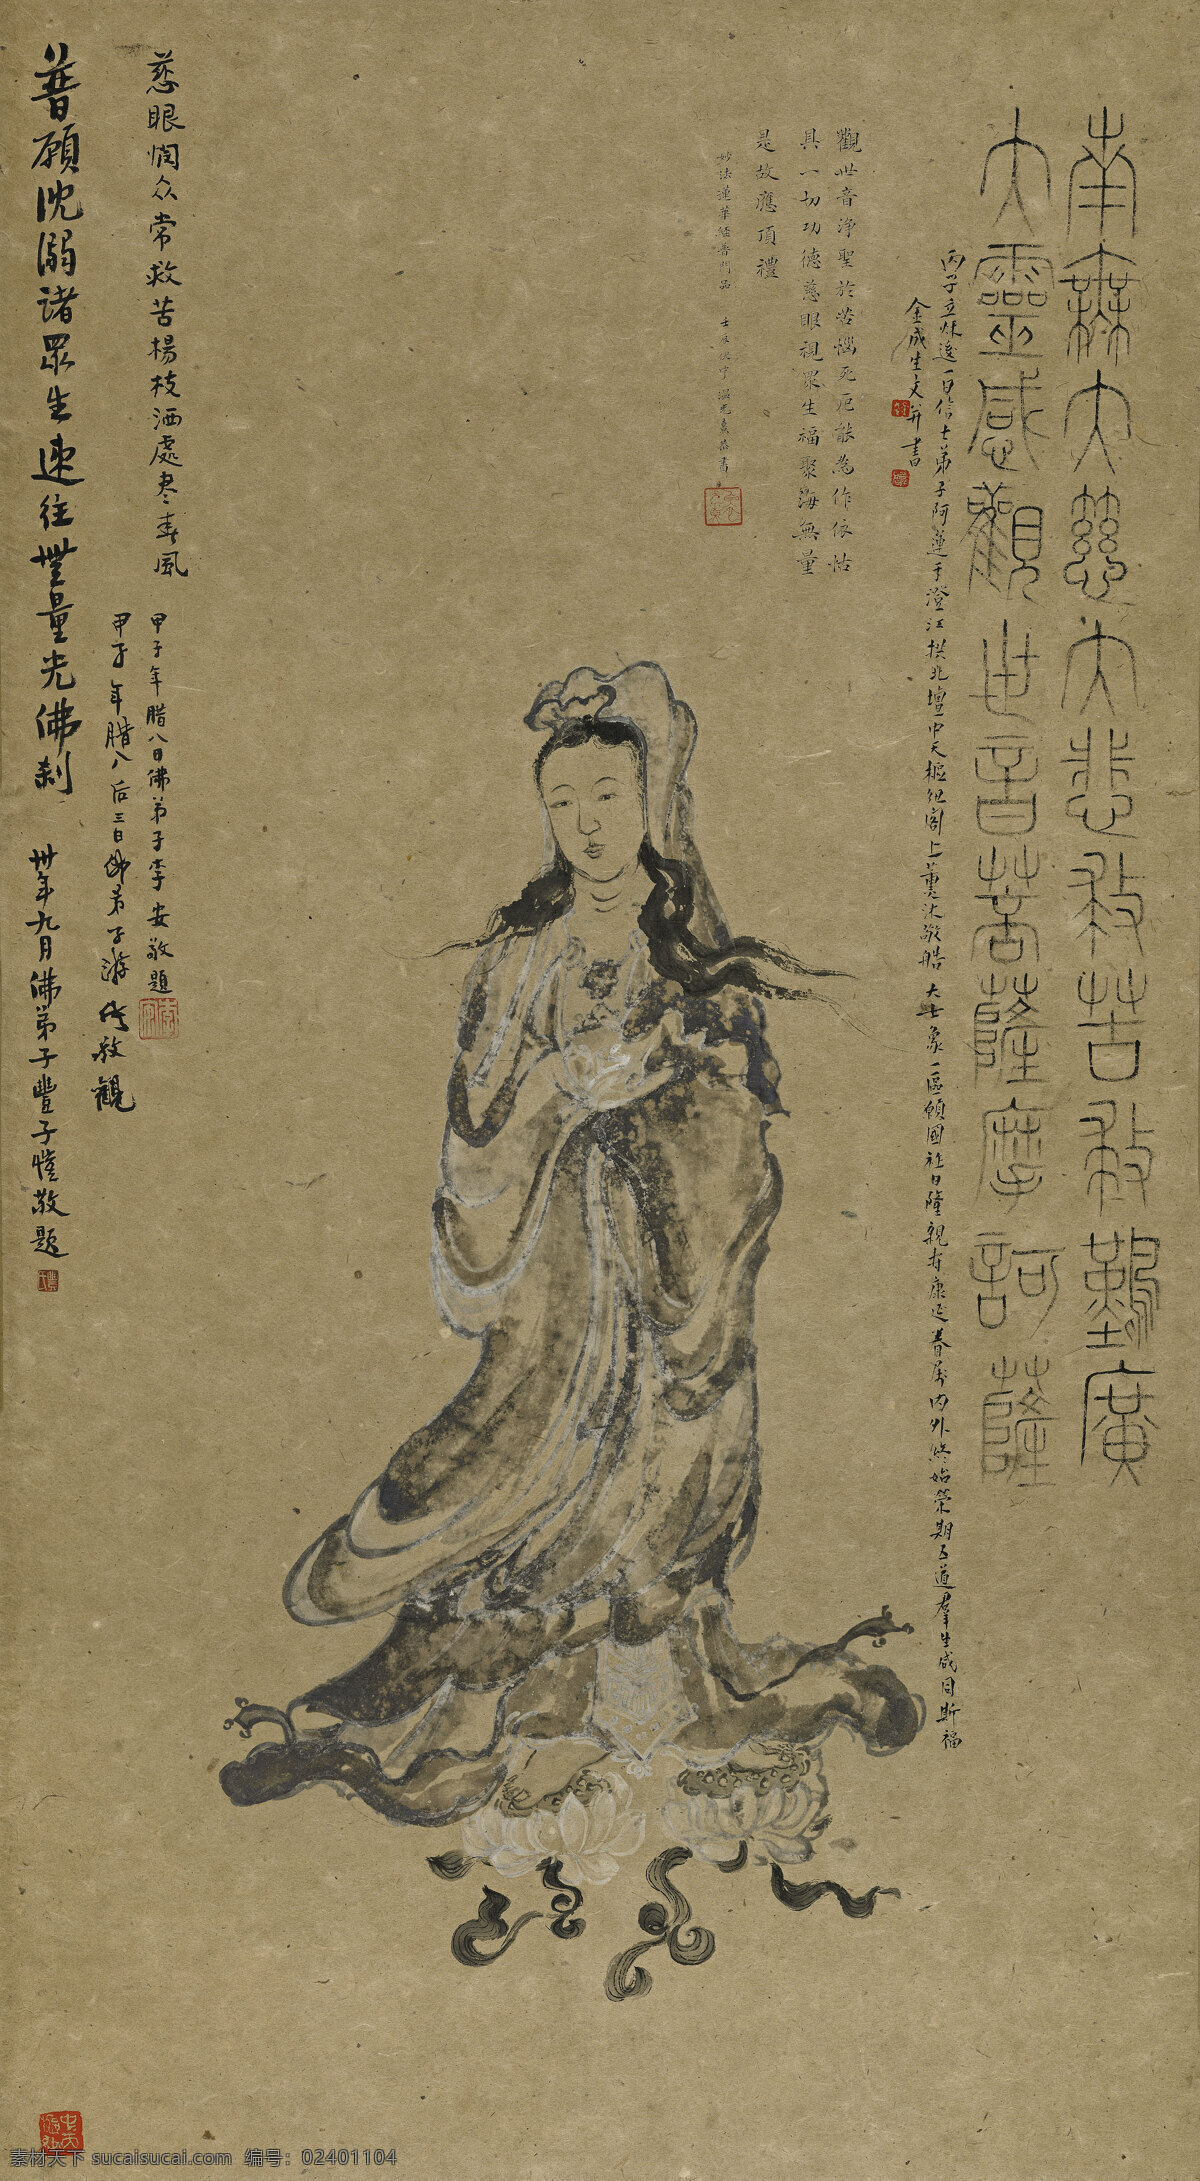 南無大慈大悲救苦救難廣
大靈感觀世音菩薩摩訶薩
丙子立秋後一日信士弟子阿蓮于澄江拱北壇中天樞紐閣上薰沐敬皓大士象一區願國祚日隆親寿康延眷属内外終始榮期五道羣生咸同斯福
金成生文并書
觀世音淨聖於苦惱死厄能為作依怙
具一切功德慈眼視眾生福聚海無量
是故應頂禮
妙法蓮華經普門品
慈眼憫众常救苦楊枝洒處尽春風
甲子年腊八日佛弟子李安敬題
甲子年腊八后三日佛弟子游 敬觀
普願沈溺諸眾生速往無量光佛刹
卅年九月佛弟子豐子愷敬題
素材天下 sucaisucai.com 编号：02401104